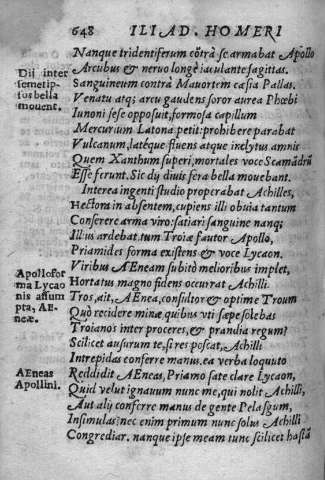 648 ILIAD. HOMERI
Nanque tridentiferum cōtrà se armabat Apollo
Arcubus & neruo longè iaculante sagittas.
Sanguineum contrà Mauortem cæsia Pallas.
Venatu atq; arcu gaudens soror aurea Phœbi
Iunoni sese opposuit, formosa capillum
Mercurium Latona petit: prohibere parabat
Vulcanum, latéque fluens atque inclytus amnis
Quem Xanthum superi, mortales voce Scamādrū
Esse ferunt. Sic dy diuis fera bella mouebant.
Interea ingenti studio properabat Achilles,
Hectora in absentem, cupiens illi obuia tantum
Conserere arma viro: satiari sanguine nanq;
Illius ardebat. tum Troiæ fautor Apollo,
Priamides forma existens & voce Lycaon.
Viribus AEneam subitò melioribus implet,
Hortatus magno fidens occurrat Achilli.
Tros, ait, AEnea, consultor & optime Troum
Quò recidere minæ quibus vti sæpe solebas
Troianos inter proceres, & prandia regum?
Scilicet ausurum te, si res poscat, Achilli
Intrepidas conferre manus. ea verba loquuto
Reddidit AEneas, Priamo sate clare Lycaon,
Quid velut ignauum nunc me, qui nolit Achilli,
Aut alij conferre manus de gente Pelasgum,
Insimulas? nec enim primum nunc solus Achilli
Congrediar. nanque ipse meam tunc scilicet hastā
Dij inter
semetip-
sos bella
mouent.
Apollo for
ma Lycao
nis assum
pta, AE-
neæ.
AEneas
Apollini.